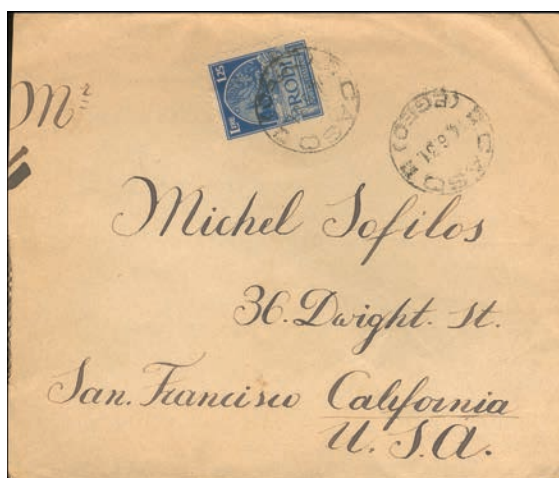 Mr
LIRE 1.25
RODI
CASO
CASO
(EGEO)
Michel Sofilos
36. Dwight. St.
San. Francisco California
U. S. A.